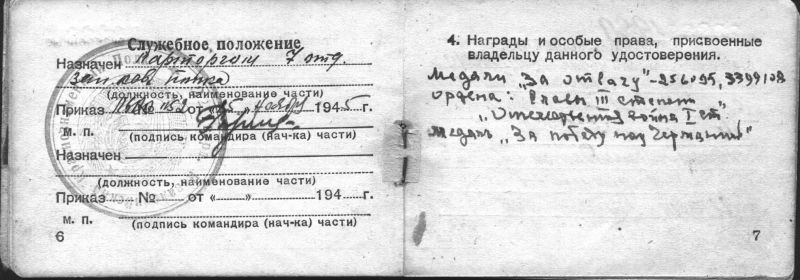 Служебное положение
Назначен Парторгом 7 отд.
зап. кав. полка
(должность, наименование части)
Приказ № 152 от « 25 » ноября 1945 г.
м. п.
(подпись командира (нач-ка) части)
Назначен
(должность, наименование части)
Приказ № от « » 194 г.
м. п.
(подпись командира (нач-ка) части)
6
4. Награды и особые права, присвоенные
владельцу данного удостоверения.
Медали „За отвагу"
ордена: Славы III степени
„Отечественная война I ст.
Медаль „За победу над Германией"
7